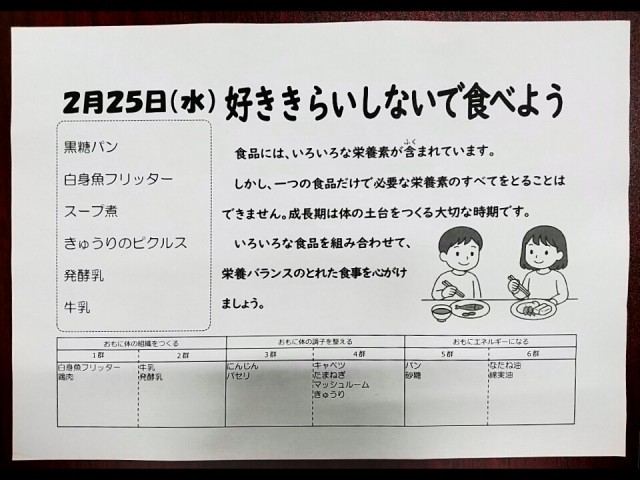 2月25日(水) 好ききらいしないで食べよう
黒糖パン
白身魚フリッター
スープ煮
きゅうりのピクルス
発酵乳
牛乳
食品には、いろいろな栄養素が含まれています。
ふく
しかし、一つの食品だけで必要な栄養素のすべてをとることは
できません。成長期は体の土台をつくる大切な時期です。
いろいろな食品を組み合わせて、
栄養バランスのとれた食事を心がけ
ましょう。
おもに体の組織をつくる おもに体の調子を整える おもにエネルギーになる
1群 2群 3群 4群 5群 6群
白身魚フリッター 牛乳 にんじん キャベツ パン なたね油
鶏肉 発酵乳 パセリ たまねぎ 砂糖 綿実油
マッシュルーム
きゅうり